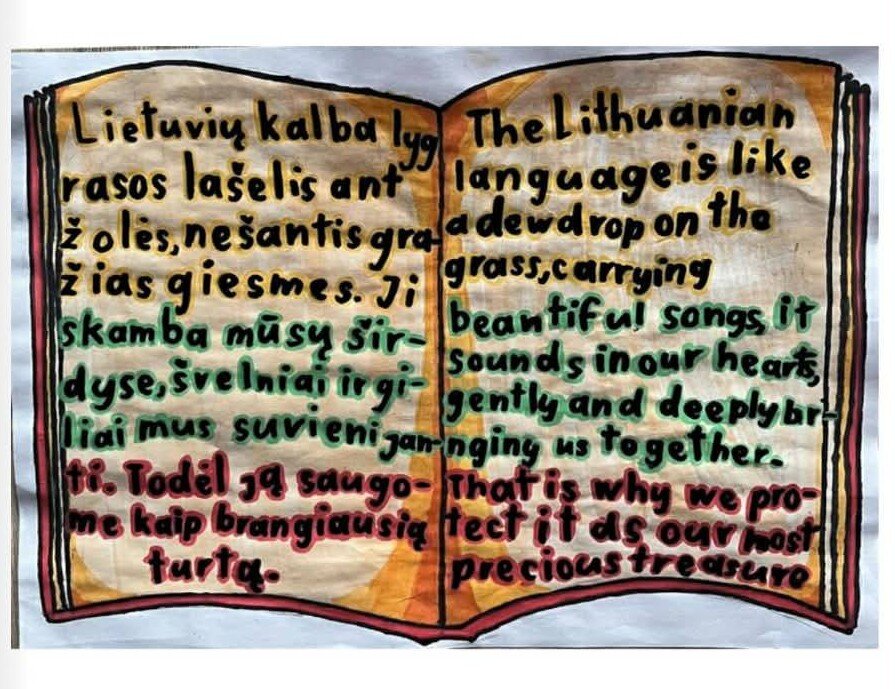 Lietuvių kalba lyg
rasos lašelis ant
žolės, nešantis gra-
žias giesmes. Ji
skamba mūsų šir-
dyse, švelniai ir gi-
liai mus suvienijam-
ti. Todėl ją saugo-
me kaip brangiausią
turtą.
The Lithuanian
language is like
a dewdrop on the
grass, carrying
beautiful songs, it
sounds in our hearts,
gently and deeply br-
nging us together.
That is why we pro-
tect it as our most
precious treasure